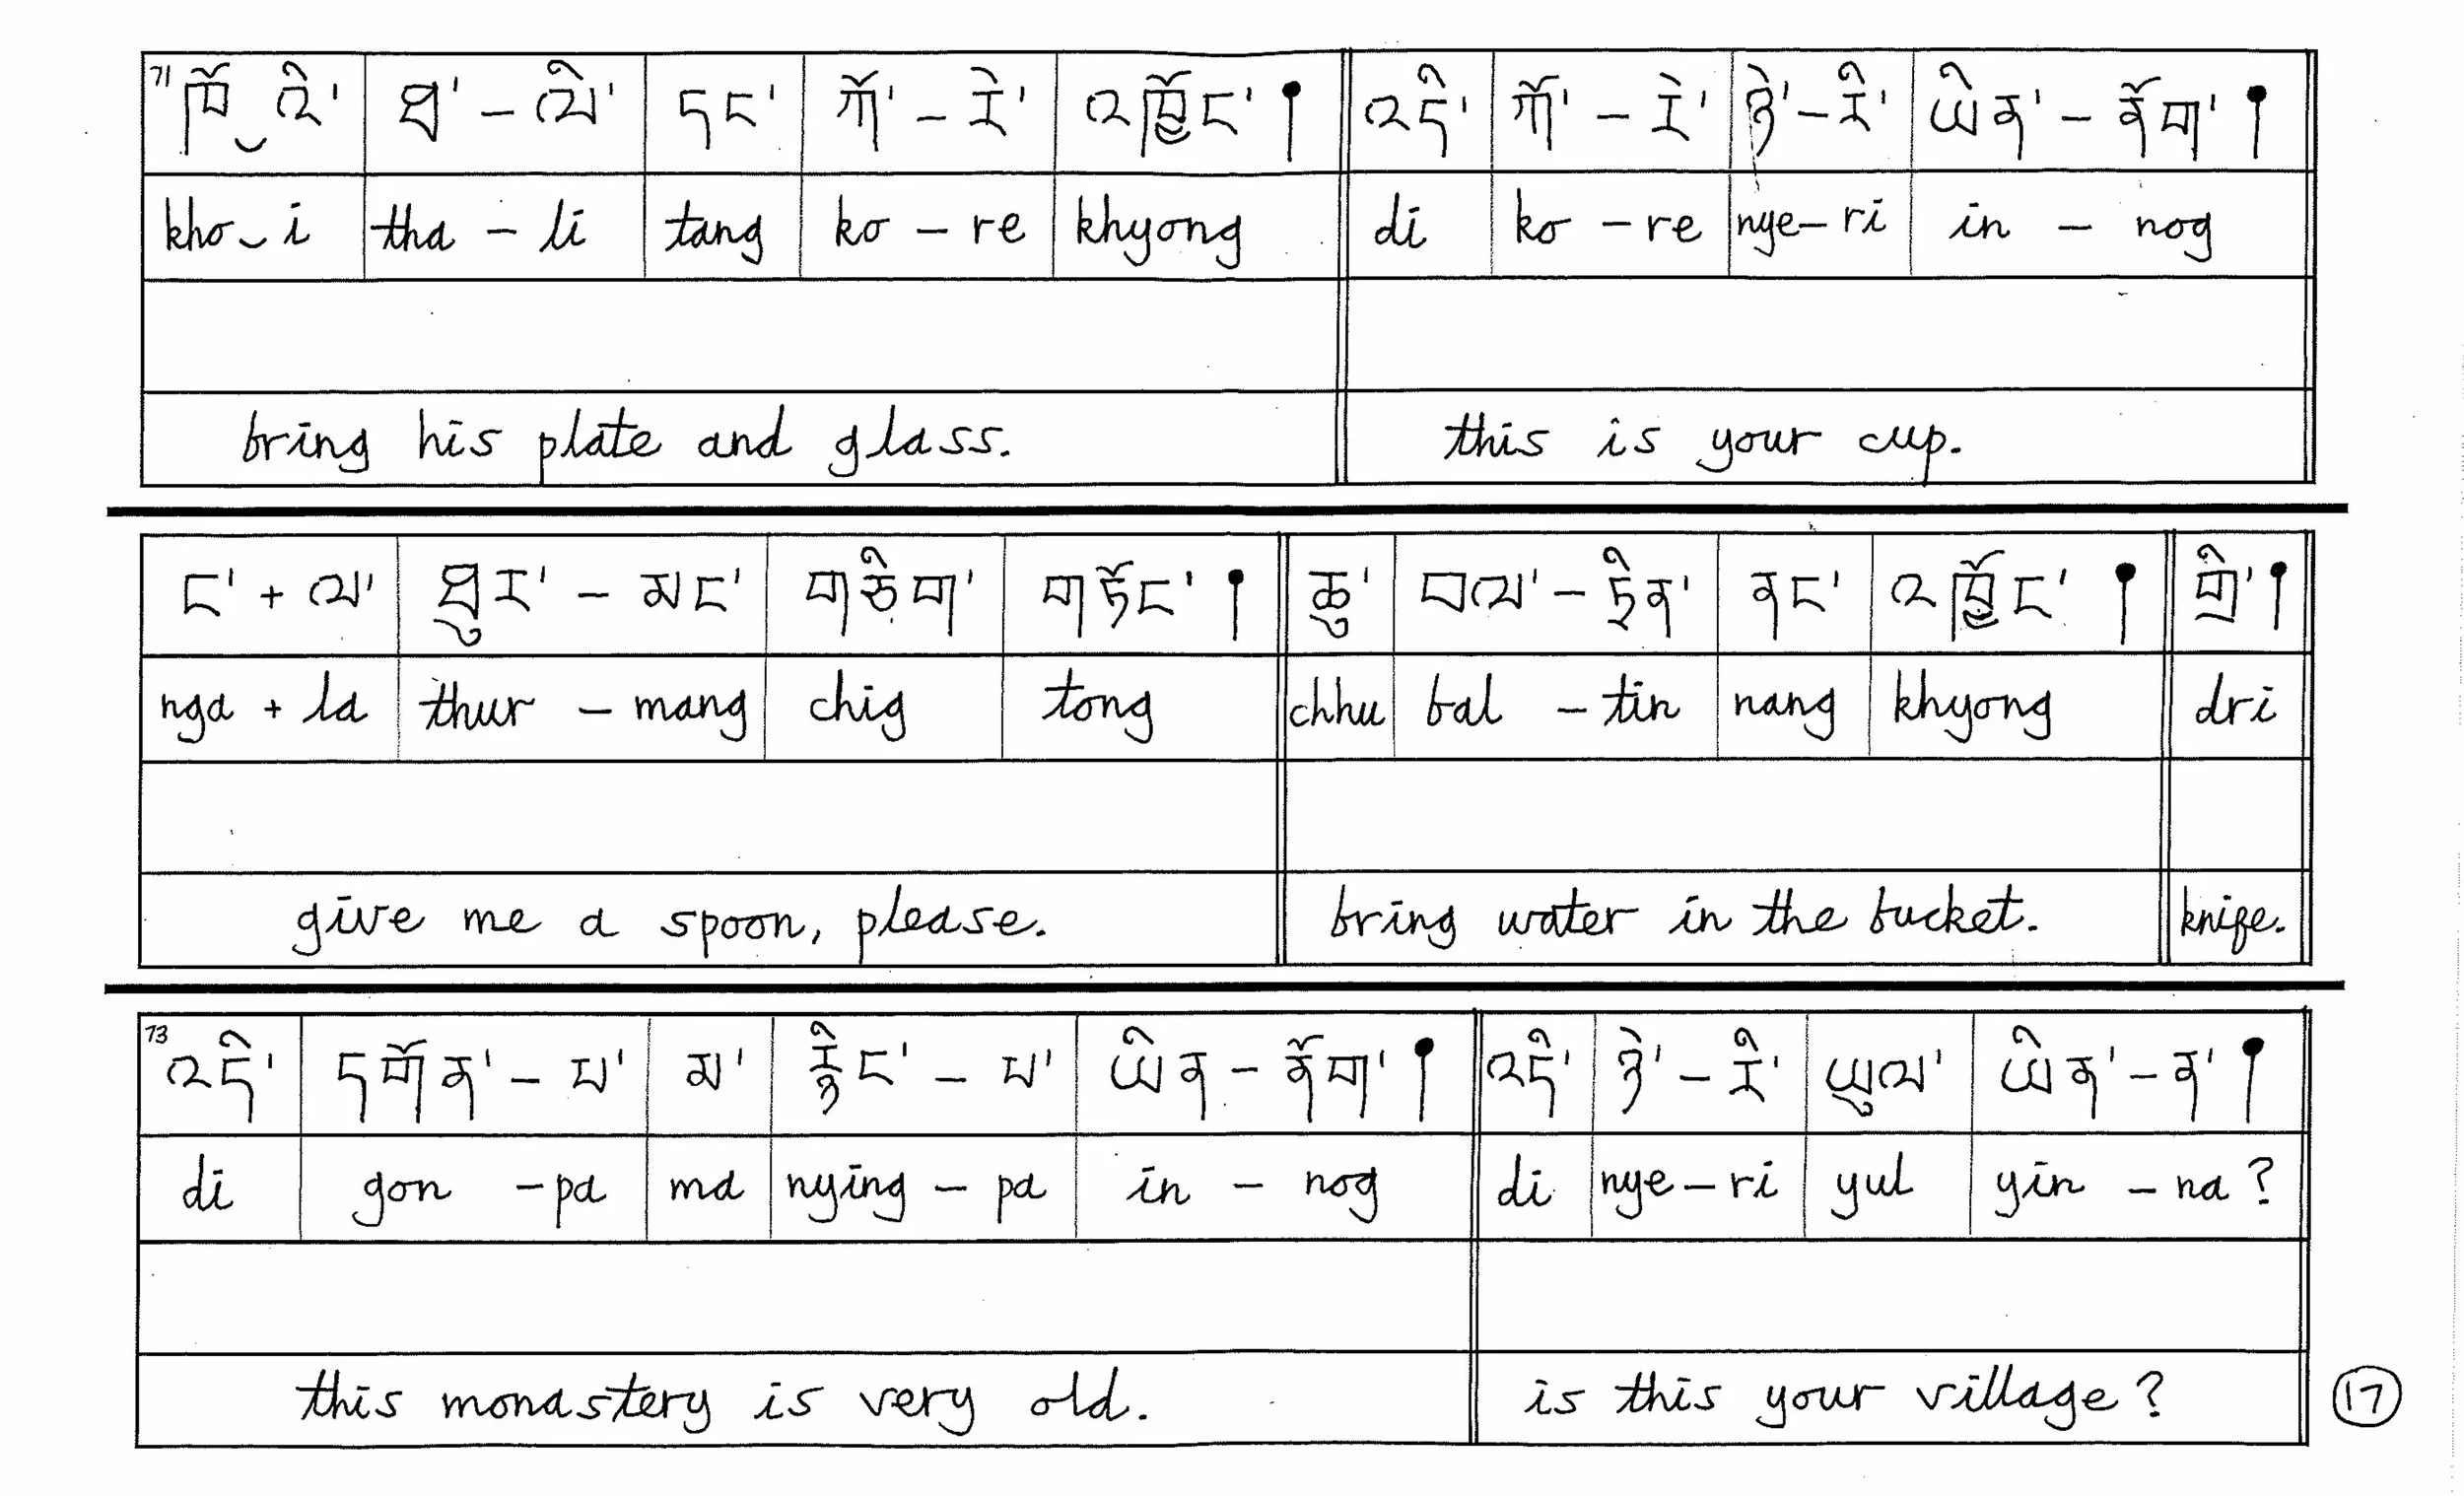 71 ཁོ ‿ འི་ ཐ་ – ལི་ དང་ ཀོ་ – རེ་ འཁྱོང་ ། འདི་ ཀོ་ – རེ་ ཉེ་ – རི་ ཡིན་ – ནོག་ །
kho ‿ i tha – li tang ko – re khyong di ko – re nye – ri in – nog
bring his plate and glass. this is your cup.
ང་ + ལ་ ཐུར་ – མང་ གཅིག་ གཏོང་ ། ཆུ་ བལ་ – ཏིན་ ནང་ འཁྱོང་ ། གྲི་ །
nga + la thur – mang chig tong chhu bal – tin nang khyong dri
give me a spoon, please. bring water in the bucket. knife.
73 འདི་ དགོན་ – པ་ མ་ རྙིང་ – པ་ ཡིན – ནོག་ ། འདི་ ཉེ་ – རི་ ཡུལ་ ཡིན་ – ན་ །
di gon – pa ma nying – pa in – nog di nye – ri yul yin – na ?
this monastery is very old. is this your village ?
17